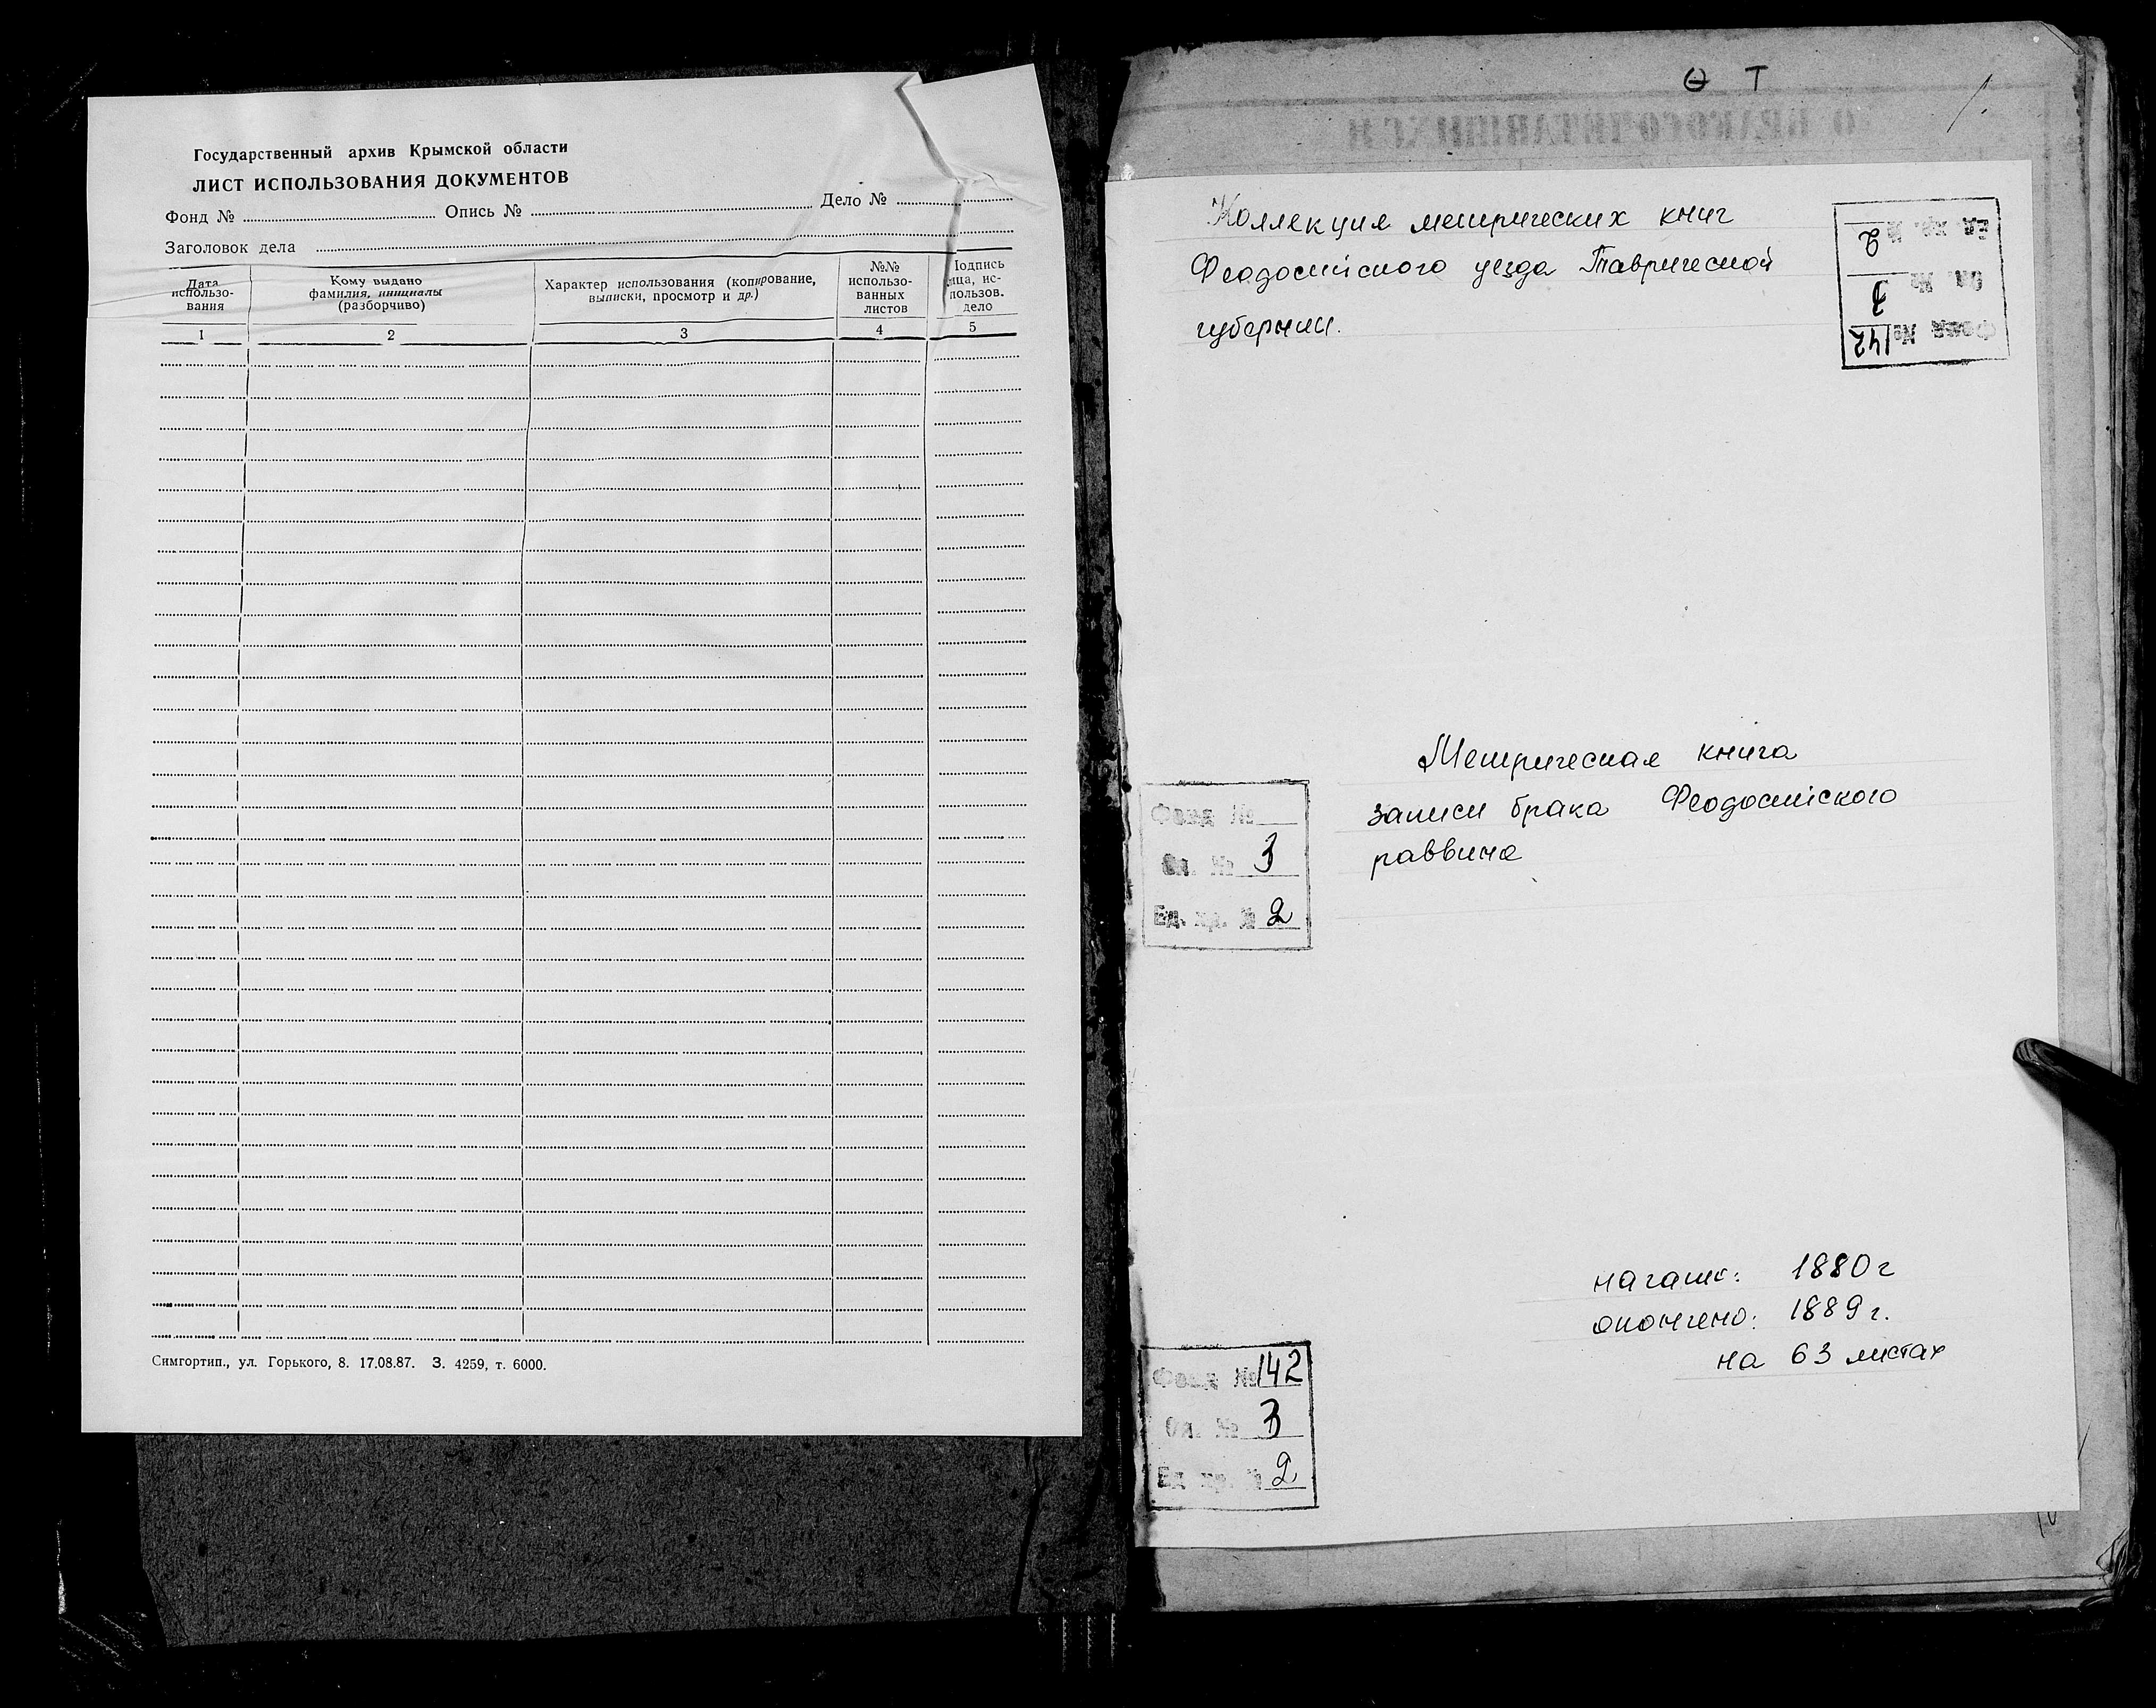 Государственный архив Крымской области
ЛИСТ ИСПОЛЬЗОВАНИЯ ДОКУМЕНТОВ
Фонд № Опись № Дело №
Заголовок дела
Дата использо-вания
Кому выдано фамилия, инициалы (разборчиво)
Характер использования (копирование, выписки, просмотр и др.)
№№ использо-ванных листов
Іодпись ица, ис-пользов. дело
1 2 3 4 5
Симгортип., ул. Горького, 8. 17.08.87. З. 4259, т. 6000.
Θ Т
1.
О БРАКОСОЧЕТАВШИХСЯ
Коллекция метрических книг
Феодосийского уезда Таврической
губернии.
Фонд № 142
Оп. № 3
Ед. хр. № 2
Метрическая книга
записи брака Феодосийского
раввина
Фонд №
Оп. № 3
Ед. хр. № 2
начато: 1880 г
окончено: 1889 г.
на 63 листах
Фонд № 142
Оп. № 3
Ед. хр. № 2